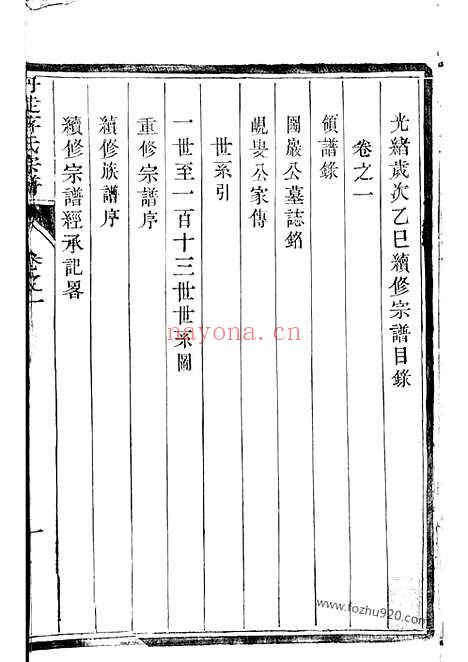 光緒歲次乙巳續修宗譜目錄
卷之一
領譜錄
圖巖公墓誌銘
峴叟公家傳
世系引
一世至一百十三世世系圖
重修宗譜序
續修族譜序
續修宗譜經承記畧
氏宗譜
卷之一
一
nayona.cn
www.fozhu920.com